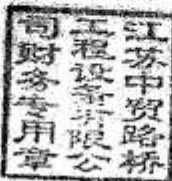 江苏中贸路桥
工程设备有限公
司财务专用章